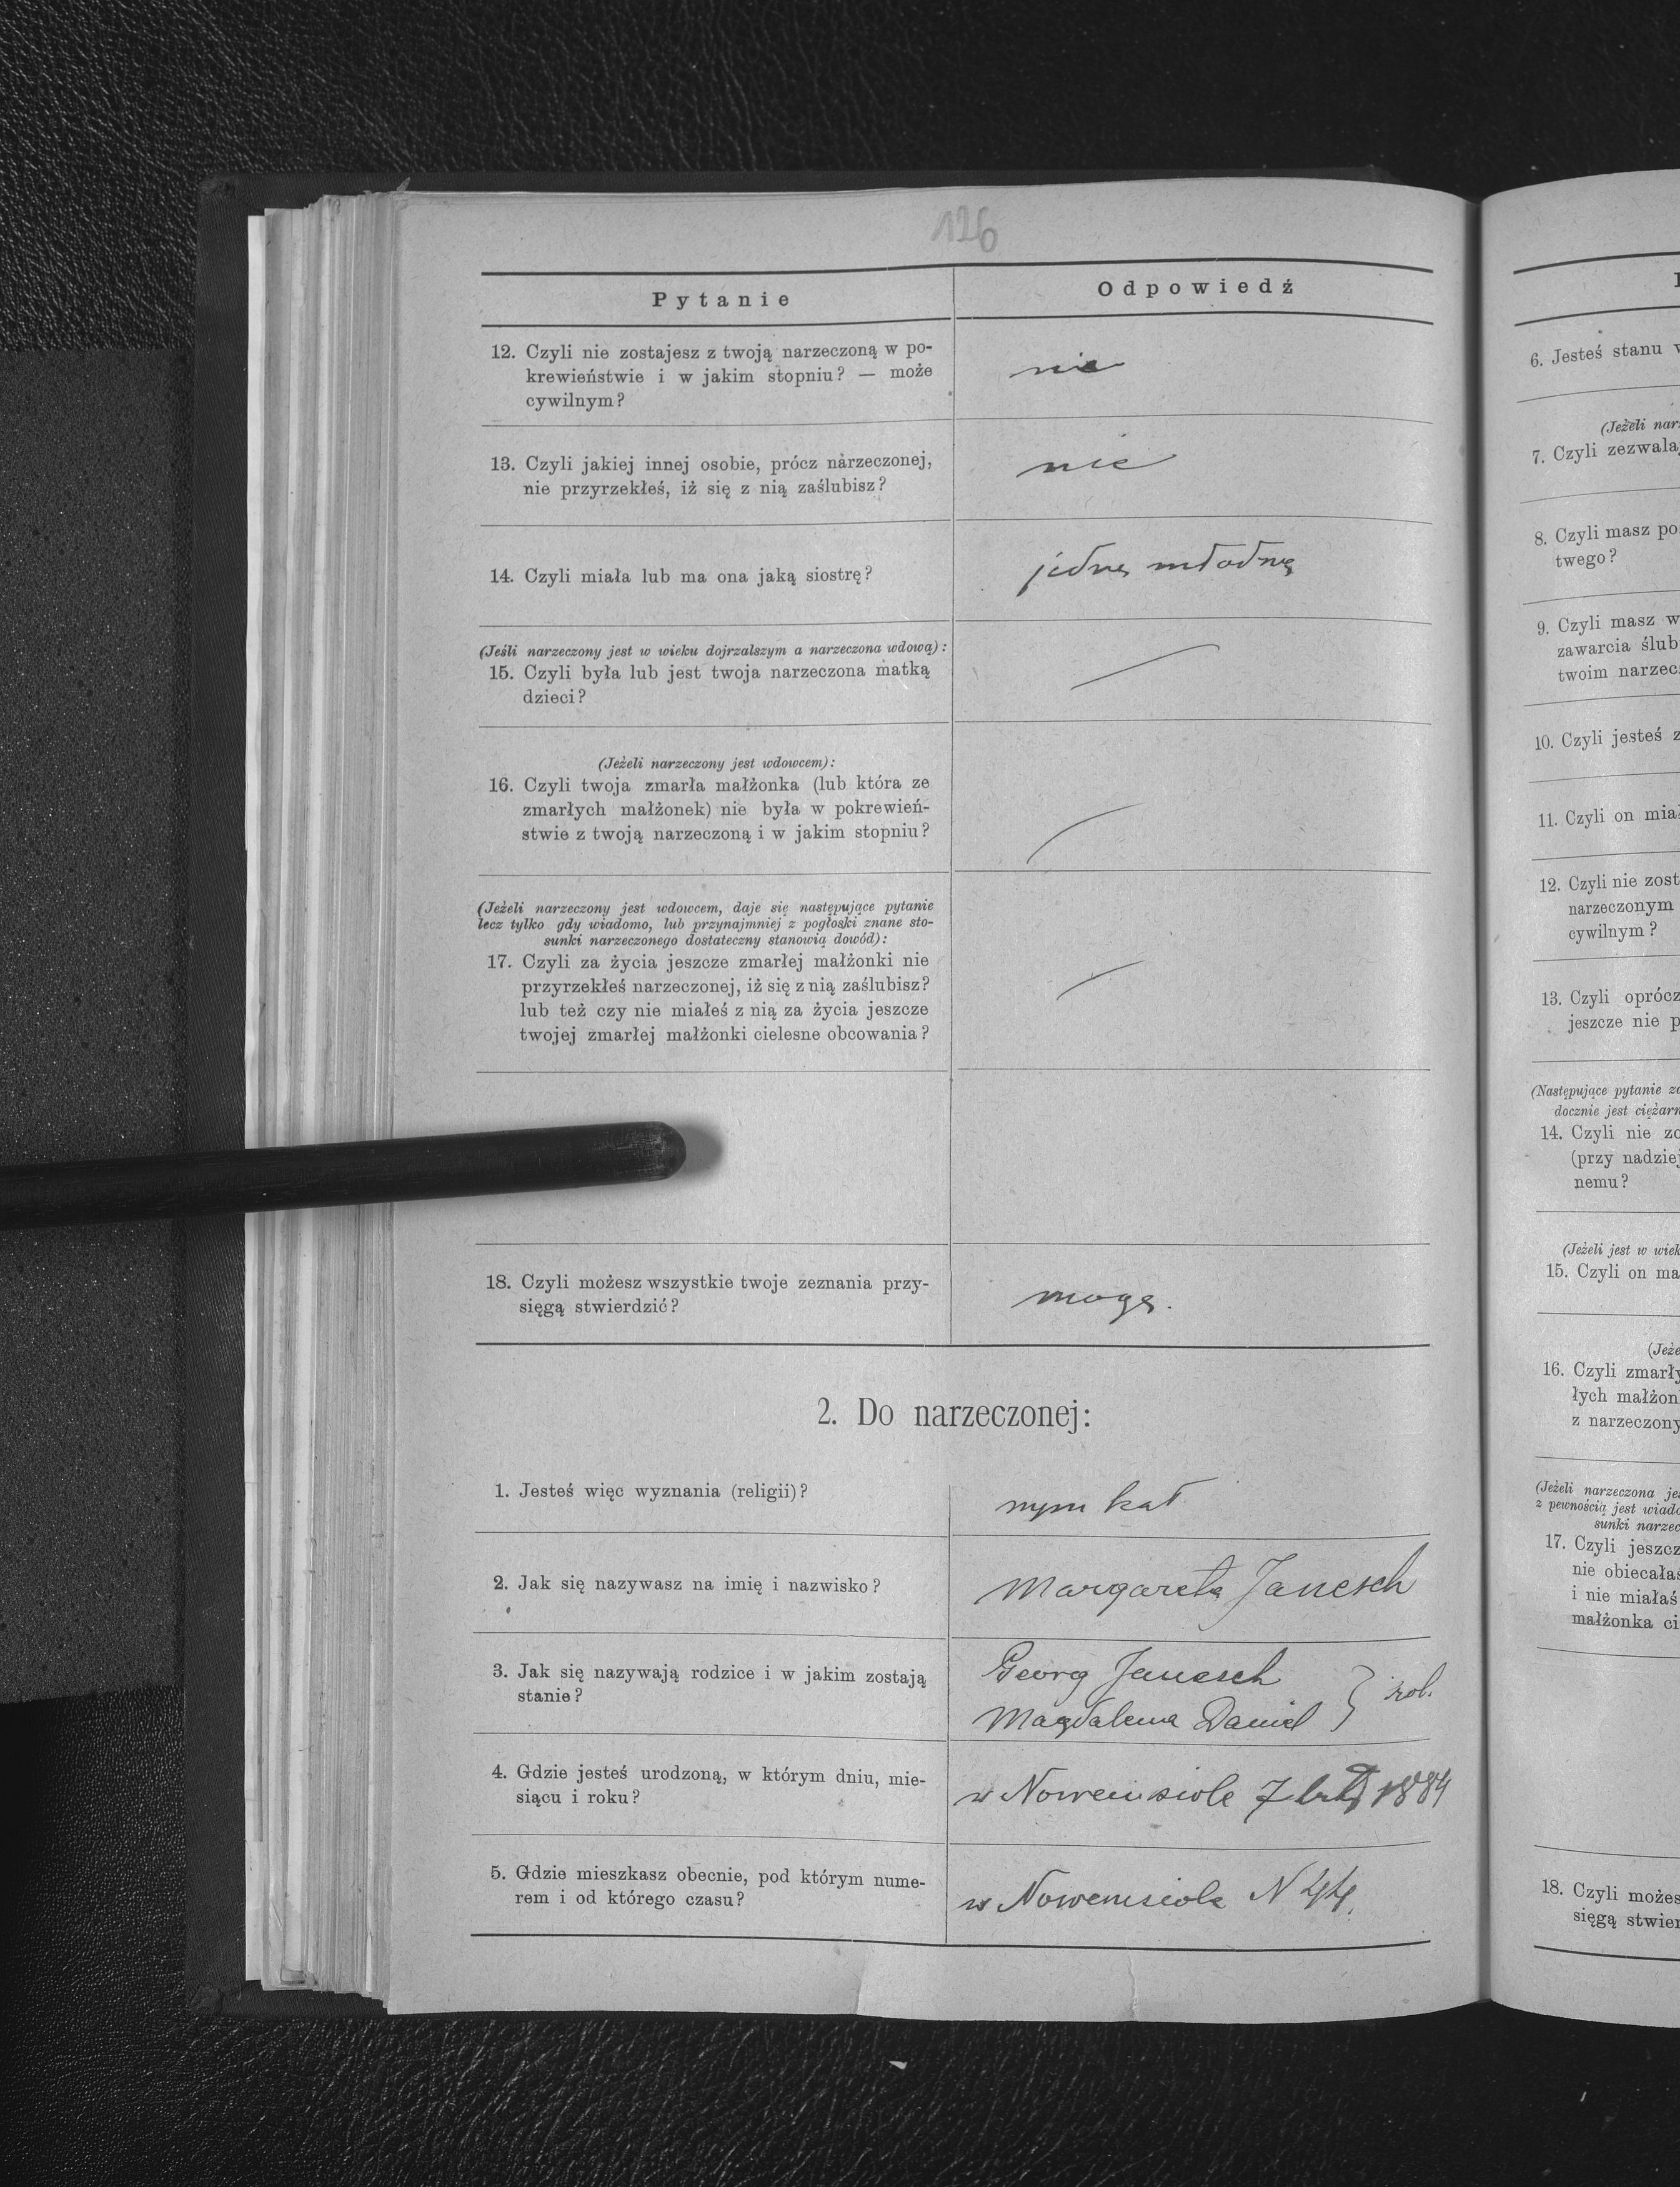 126
Pytanie
Odpowiedź
12. Czyli nie zostajesz z twoją narzeczoną w po-
krewieństwie i w jakim stopniu? — może
cywilnym?
nie
13. Czyli jakiej innej osobie, prócz narzeczonej,
nie przyrzekłeś, iż się z nią zaślubisz?
nie
14. Czyli miała lub ma ona jaką siostrę?
jedną
(Jeśli narzeczony jest w wieku dojrzalszym a narzeczona wdową):
15. Czyli była lub jest twoja narzeczona matką
dzieci?
(Jeżeli narzeczony jest wdowcem):
16. Czyli twoja zmarła małżonka (lub która ze
zmarłych małżonek) nie była w pokrewień-
stwie z twoją narzeczoną i w jakim stopniu?
(Jeżeli narzeczony jest wdowcem, daje się następujące pytanie
lecz tylko gdy wiadomo, lub przynajmniej z pogłoski znane sto-
sunki narzeczonego dostateczny stanowią dowód):
17. Czyli za życia jeszcze zmarłej małżonki nie
przyrzekłeś narzeczonej, iż się z nią zaślubisz?
lub też czy nie miałeś z nią za życia jeszcze
twojej zmarłej małżonki cielesne obcowania?
18. Czyli możesz wszystkie twoje zeznania przy-
sięgą stwierdzić?
mogę.
2. Do narzeczonej:
1. Jesteś więc wyznania (religii)?
rzym kat
2. Jak się nazywasz na imię i nazwisko?
Margareta Janesch
3. Jak się nazywają rodzice i w jakim zostają
stanie?
Georg Janesch
Magdalena Daniel } rol.
4. Gdzie jesteś urodzoną, w którym dniu, mie-
siącu i roku?
w Nowemsiole 7 1884
5. Gdzie mieszkasz obecnie, pod którym nume-
rem i od którego czasu?
w Nowemsiole N 44.
6. Jesteś stanu
(Jeżeli
7. Czyli
8. Czyli masz
twego?
9. Czyli masz
zawarcia
twoim
10. Czyli jesteś
11. Czyli on
12. Czyli nie
narzeczonym
cywilnym?
13. Czyli oprócz
jeszcze nie
(Następujące pytanie
docznie jest
14. Czyli nie
(przy
nemu?
(Jeżeli jest w
15. Czyli on
16. Czyli
łych
z
(Jeżeli narzeczona
z pewnością jest
sunki
17. Czyli
nie
i nie miałaś
małżonka
18. Czyli
sięgą